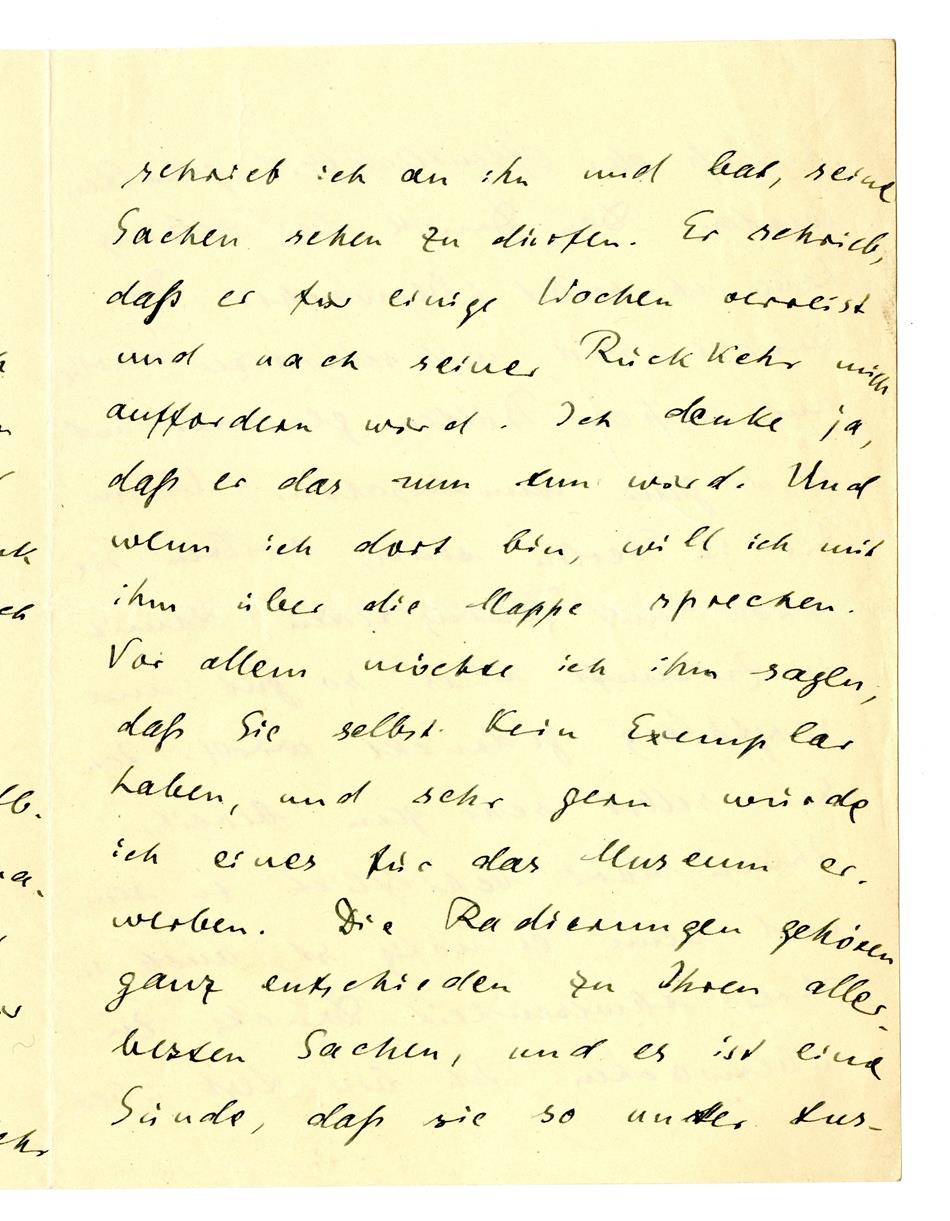 schrieb ich an ihn und bat, seine
Sachen sehen zu dürfen. Er schrieb,
daß er für einige Wochen verreist
und nach seiner Rückkehr mich
auffordern wird. Ich denke ja,
daß er das nun tun wird. Und
wenn ich dort bin, will ich mit
ihm über die Mappe sprechen.
Vor allem möchte ich ihm sagen,
daß Sie selbst kein Exemplar
haben, und sehr gern würde
ich eines für das Museum er-
werben. Die Radierungen gehören
ganz entschieden zu Ihren aller-
besten Sachen, und es ist eine
Sünde, daß sie so unter